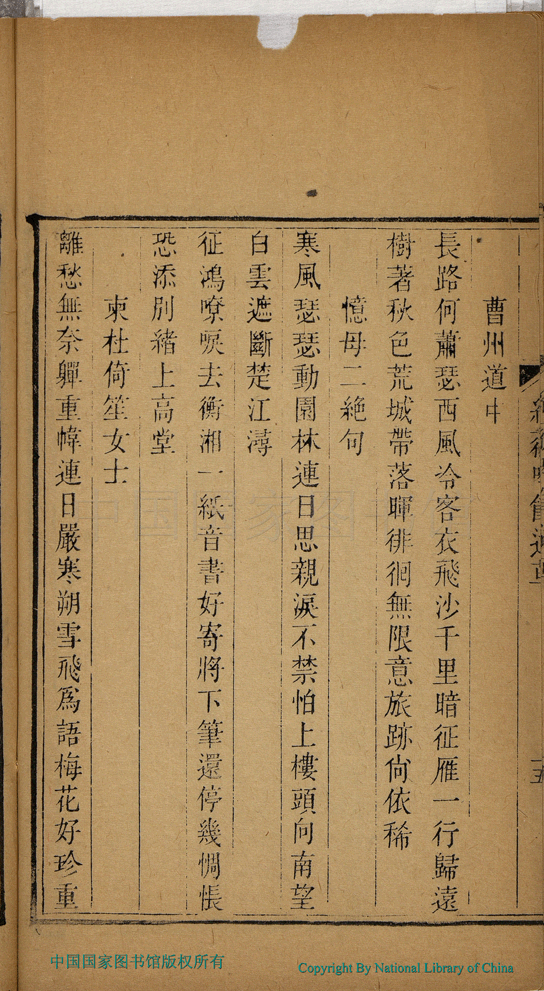 曹州道中
長路何蕭瑟西風冷客衣飛沙千里暗征雁一行歸遠
樹著秋色荒城帶落暉徘徊無限意旅跡尙依稀
憶母二絶句
寒風瑟瑟動園林連日思親淚不禁怕上樓頭向南望
白雲遮斷楚江潯
征鴻嘹唳去衡湘一紙音書好寄將下筆還停幾惆悵
恐添別緒上高堂
柬杜倚笙女士
離愁無奈鿃重幃連日嚴寒朔雪飛爲語梅花好珍重
中国国家图书馆版权所有
Copyright By National Library of China